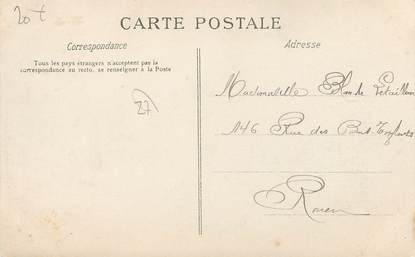 20 t
CARTE POSTALE
Correspondance
Tous les pays étrangers n'acceptent pas la
correspondance au recto, se renseigner à la Poste
Adresse
27
Mademoiselle Blanche
146 Rue des Bons-Enfants
Rouen